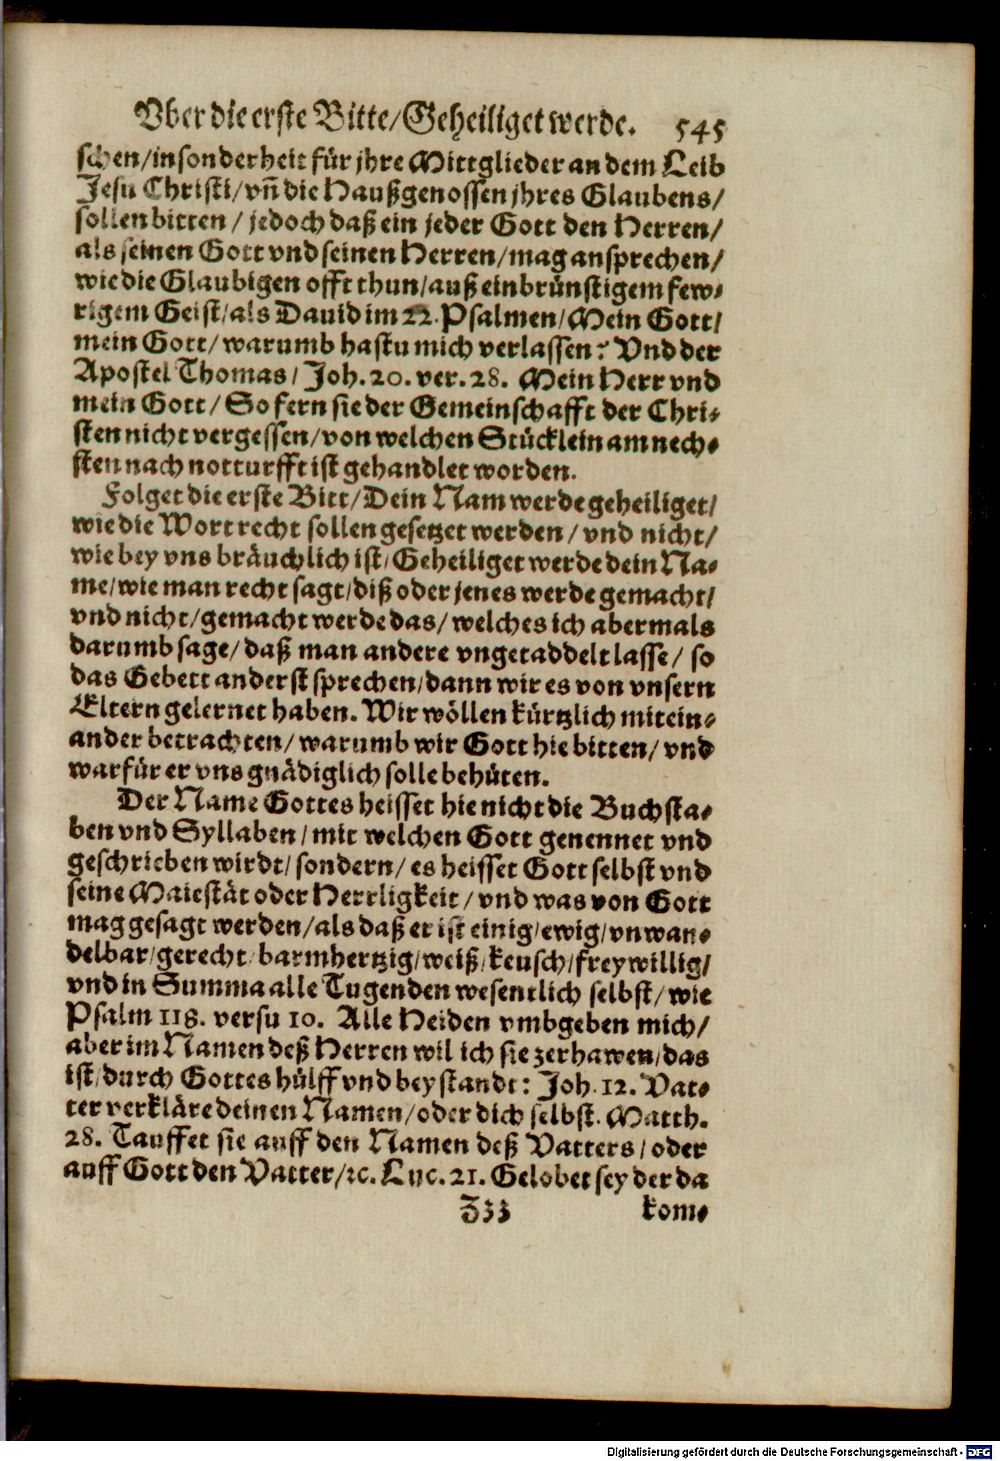 Vber die erste Bitte/Geheiliget werde. 545
schen/insonderheit für jhre Mittglieder an dem Leib
Jesu Christi/vñ die Haußgenossen jhres Glaubens/
sollen bitten/ jedoch daß ein jeder Gott den Herren/
als seinen Gott vnd seinen Herren/mag ansprechen/
wie die Glaubigen offt thun/auß einbrünstigem few-
rigem Geist/als Dauid im 22. Psalmen/Mein Gott/
mein Gott/warumb hastu mich verlassen? Vnd der
Apostel Thomas/ Joh. 20. ver. 28. Mein Herr vnd
mein Gott/ So fern sie der Gemeinschafft der Chri-
sten nicht vergessen/von welchen Stücklein am nech-
sten nach notturfft ist gehandlet worden.
Folget die erste Bitt/Dein Nam werde geheiliget/
wie die Wort recht sollen gesetzet werden/ vnd nicht/
wie bey vns bräuchlich ist/Geheiliget werde dein Na-
me/wie man recht sagt/diß oder jenes werde gemacht/
vnd nicht/gemacht werde das/welches ich abermals
darumb sage/daß man andere vngetaddelt lasse/ so
das Gebett anderst sprechen/dann wir es von vnsern
Eltern gelernet haben. Wir wöllen kürtzlich mitein-
ander betrachten/warumb wir Gott hie bitten/vnd
warfür er vns gnädiglich solle behüten.
Der Name Gottes heisset hie nicht die Buchsta-
ben vnd Syllaben/mit welchen Gott genennet vnd
geschrieben wirdt/sondern/es heisset Gott selbst vnd
seine Maiestät oder Herrligkeit/vnd was von Gott
mag gesagt werden/als daß er ist einig/ewig/vnwan-
delbar/gerecht/barmhertzig/weiß/keusch/freywillig/
vnd in Summa alle Tugenden wesentlich selbst/wie
Psalm 118. versu 10. Alle Heiden vmbgeben mich/
aber im Namen deß Herren wil ich sie zerhawen/das
ist/durch Gottes hülff vnd beystandt: Joh. 12. Vat-
ter verkläre deinen Namen/oder dich selbst. Matth.
28. Tauffet sie auff den Namen deß Vatters/oder
auff Gott den Vatter/ꝛc. Luc. 21. Gelobet sey der da
Zzz kom-
Digitalisierung gefördert durch die Deutsche Forschungsgemeinschaft - DFG